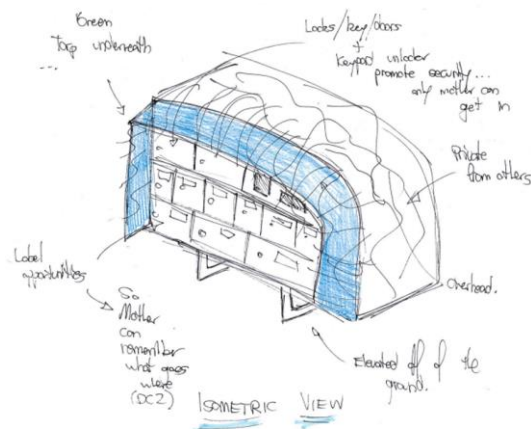 Green
Top underneath
...
Locks/key/doors
+
Keypad unlocker
promote security...
only mother can
get in
Private
from others
Overhead.
Elevated off of the
ground.
Label
opportunities
So
Mother
can
remember
what goes
where
(DCZ)
ISOMETRIC VIEW